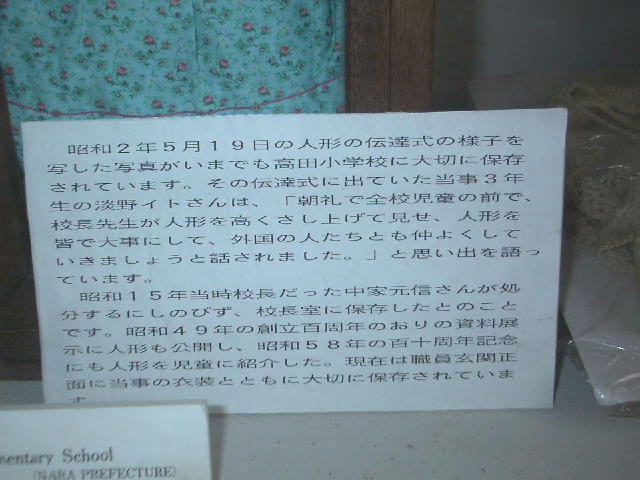 昭和２年５月１９日の人形の伝達式の様子を
写した写真がいまでも高田小学校に大切に保存
されています。その伝達式に出ていた当事３年
生の淡野イトさんは、「朝礼で全校児童の前で、
校長先生が人形を高くさし上げて見せ、人形を
皆で大事にして、外国の人たちとも仲よくして
いきましょうと話されました。」と思い出を語っ
ています。
昭和１５年当時校長だった中家元信さんが処
分するにしのびず、校長室に保存したとのこと
です。昭和４９年の創立百周年のおりの資料展
示に人形も公開し、昭和５８年の百十周年記念
にも人形を児童に紹介した。現在は職員玄関正
面に当事の衣装とともに大切に保存されていま
す。
mentary School
(NARA PREFECTURE)